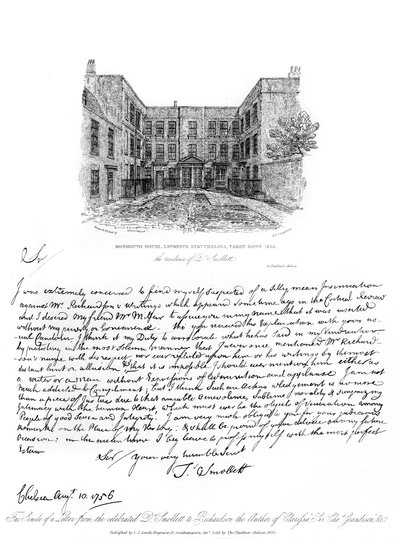 MONMOUTH HOUSE, LAWRENCE STREET CHELSEA, TAKEN DOWN
the residence of Dr. Smollett.
Sir
I was extremely concerned to find myself suspected of a silly, mean Insinuation
against Mr. Richardson's Writings which appeared some time ago in the Critical Review
and I desired my friend Mr. Millar to assure you in my name that it was inserted
without my privity or Concurrence. You received the Explanation with your us-
ual Candour; I think it my Duty to corroborate what he has said in my Vindication
by protesting in the most solemn manner that I never once mentioned Mr. Richard-
son's name with disrespect nor ever reflected upon him or his writings by the most
distant hint or allusion; that it is impossible I should ever mention him either as
a writer or a Man without Expressions of Admiration and applause. I am not
much addicted to Compliment; but I think such an Acknowledgement is no more
than a piece of Justice due to that amiable Benevolence, sublime morality &
Intimacy with the human Heart, which must ever be the objects of Veneration among
People of good Sense and Integrity. I am very much obliged to you for your judicious
remarks on the Plan of my History; & shall be proud of your advice on any future
Occasion: in the mean time I beg leave to profess myself with the most perfect
Esteem
Sir your very humble Servt
Ts. Smollett
Chelsea Augt. 10. 1756
Fac Simile of a Letter from the celebrated Dr. Smollett to Richardson the Author of Clarissa, Sir Chas. Grandison, &c.
Published by C. J. Smith, Engraver, Southampton Sold by Thos. Faulkner Chelsea